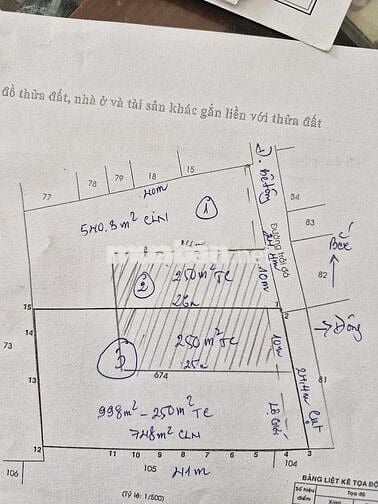 đồ thửa đất, nhà ở và tài sản khác gắn liền với thửa đất
Đ. bê tông
77
78
79
18
15
40m
84
540.3m² CLN
1
83
Bắc
Đường trải đá
muaban.net
82
2
250m² TC
10m
26m
15
1
2
Đông
14
250m² TC
10m
3
25m
73
674
81
13
998m² - 250m² TC
748m² CLN
Lộ Giới
24,4m
Cụt
12
11
10
9
8
7
6
5
4
3
106
105
41m
104
(Tỷ lệ: 1/500)
BẢNG LIỆT KÊ TỌA ĐỘ
Số hiệu
điểm
Tọa độ
X(m)